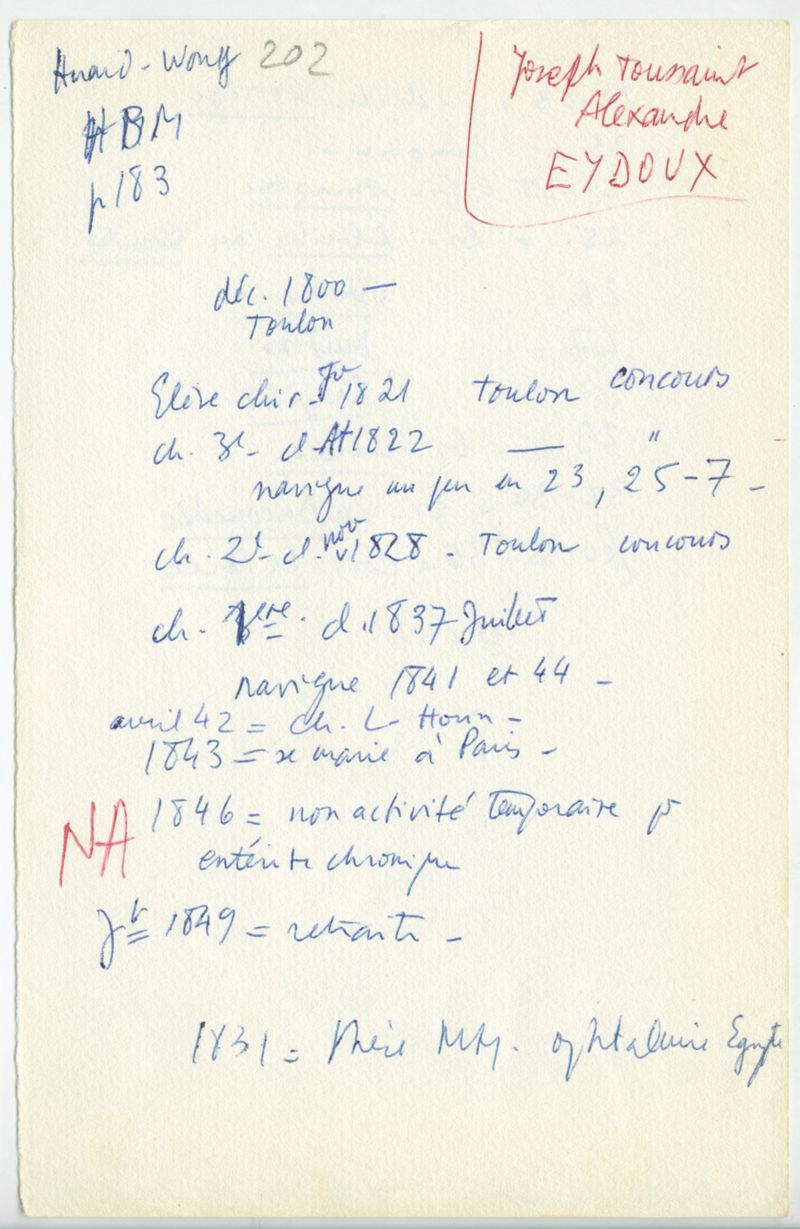 Huard-Wong 202
HBM
p 183
Joseph Toussaint
Alexandre
EYDOUX
déc. 1800 —
Toulon
Elève chir - Jr 1821 Toulon concours
ch. 3e - cl. At 1822 — "
navigue un peu en 23, 25-7 -
ch. 2e - cl. nov 1828 - Toulon concours
ch. 1ere. cl. 1837 Juillet
navigue 1841 et 44 -
avril 42 = ch. L Honn -
1843 = se marie à Paris -
NA 1846 = non activité temporaire pr
entérite chronique
Jr 1849 = retraite -
1831 = thèse Mtp. ophtalmie Egypte